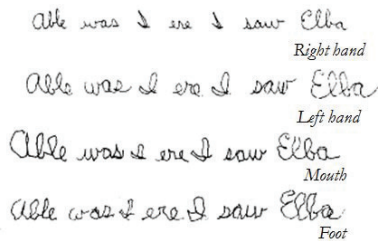 Able was I ere I saw Elba
Right hand
Able was I ere I saw Elba
Left hand
Able was I ere I saw Elba
Mouth
Able was I ere I saw Elba
Foot